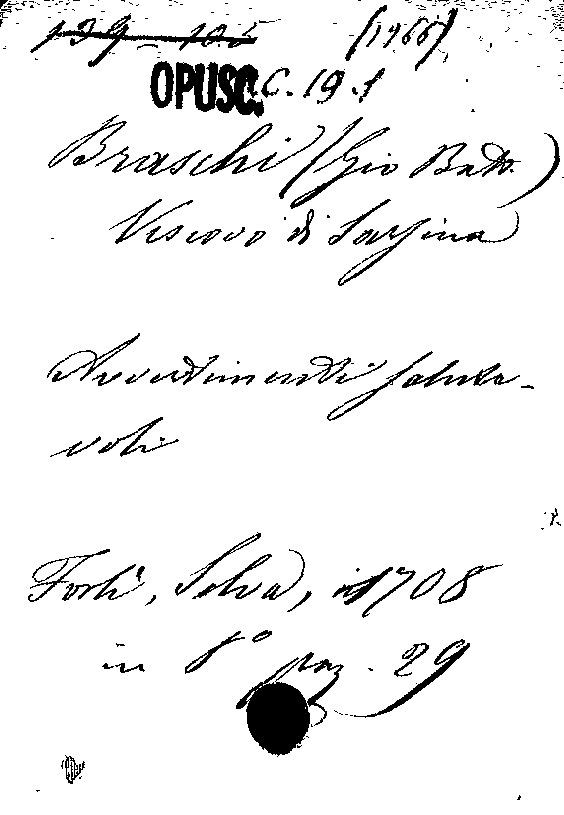 139 - 105 (1966)
OPUSC. C. 19. 1
Braschi (Gio Batt.)
Vescovo di Sarsina
Avvertimenti salute-
voli
Forlì, Selva, 1708
in 8° pag. 29